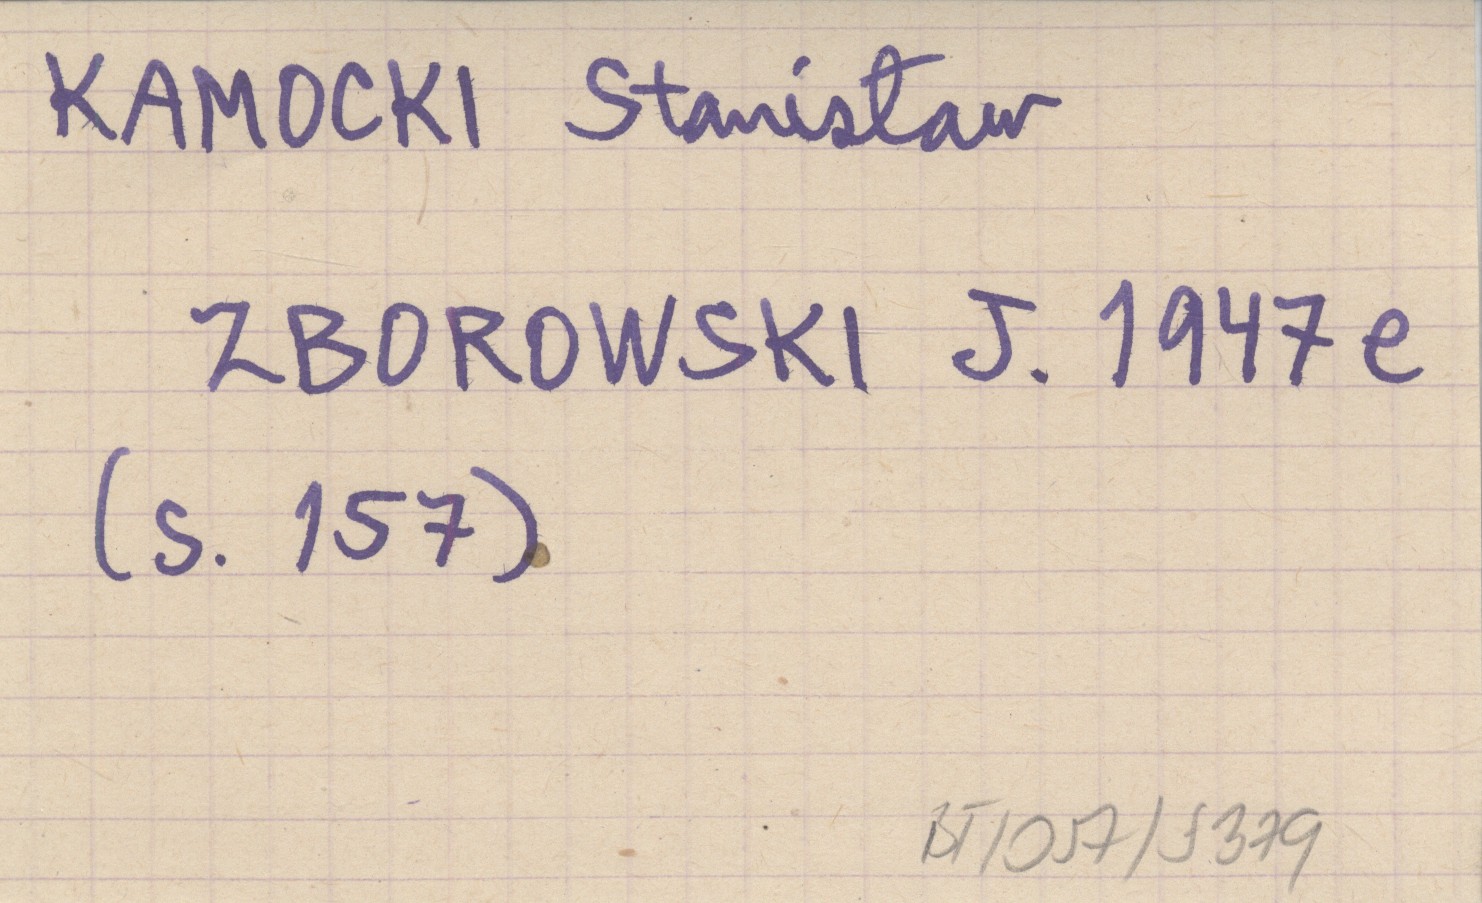 KAMOCKI Stanisław
ZBOROWSKI J. 1947e
(s. 157)
BT/057/5379